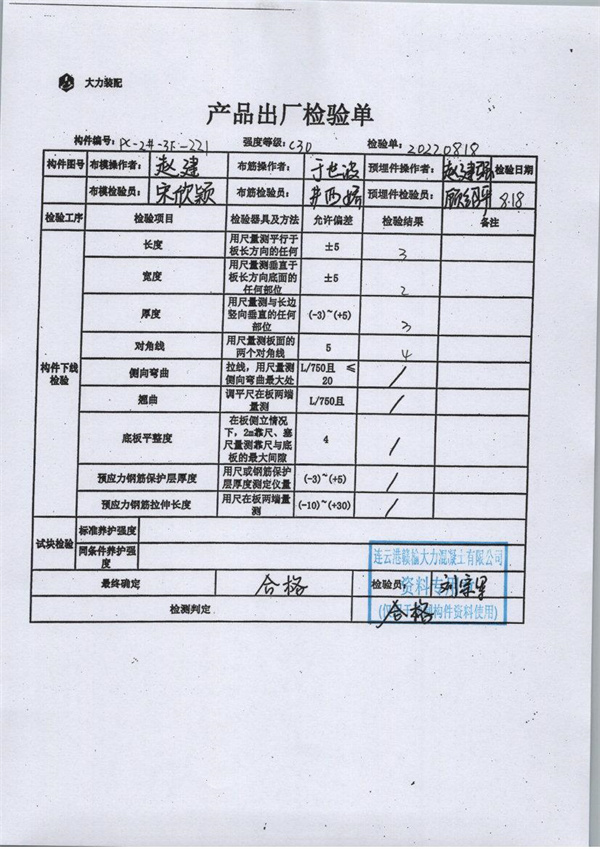 大力装配
产品出厂检验单
构件编号: PC-2#-3F-221 强度等级: C30 检验单: 20220818
构件图号 布模操作者: 赵建 布筋操作者: 预埋件操作者: 赵建强 检验日期
布模检验员: 宋欣颖 布筋检验员: 预埋件检验员: 8.18
检验工序 检验项目 检验器具及方法 允许偏差 检验结果 备注
构件下线检验
长度 用尺量测平行于板长方向的任何 ±5 3
宽度 用尺量测垂直于板长方向底面的任何部位 ±5 2
厚度 用尺量测与长边竖向垂直的任何部位 (-3)~(+5) 3
对角线 用尺量测板面的两个对角线 5 4
侧向弯曲 拉线,用尺量测侧向弯曲最大处 L/750且 ≤20 /
翘曲 调平尺在板两端量测 L/750且 /
底板平整度 在板侧立情况下,2m靠尺、塞尺量测靠尺与底板的最大间隙 4 /
预应力钢筋保护层厚度 用尺或钢筋保护层厚度测定仪量 (-3)~(+5) /
预应力钢筋拉伸长度 用尺在板两端量测 (-10)~(+30) /
试块检验 标准养护强度
同条件养护强度
连云港赣榆大力混凝土有限公司
资料专用
最终确定 合格 检验员:
检测判定 合格
构件资料使用)